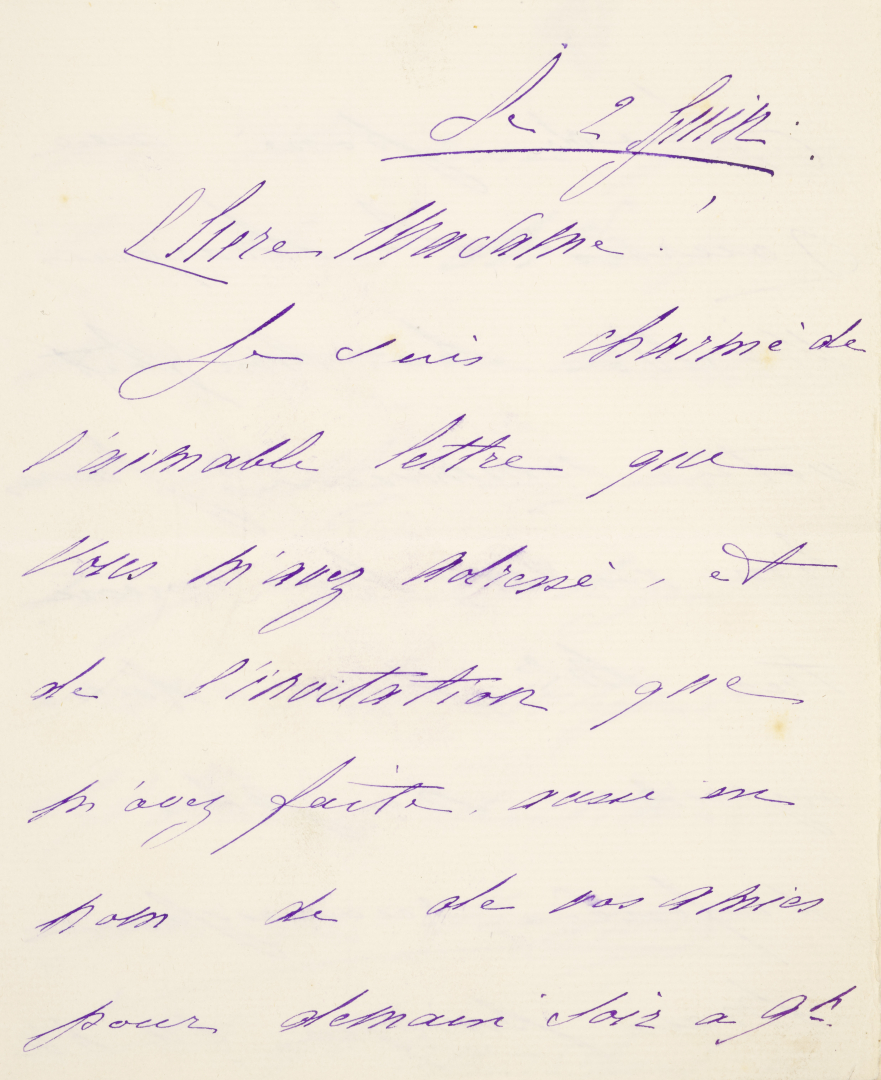 Le 2 Juin.
Chere Madame!
Je suis charmé de
l'aimable lettre que
vous m'avez adressé, et
de l'invitation que
m'avez faite, aussi en
nom de de vos amies
pour demain soir a 9h.